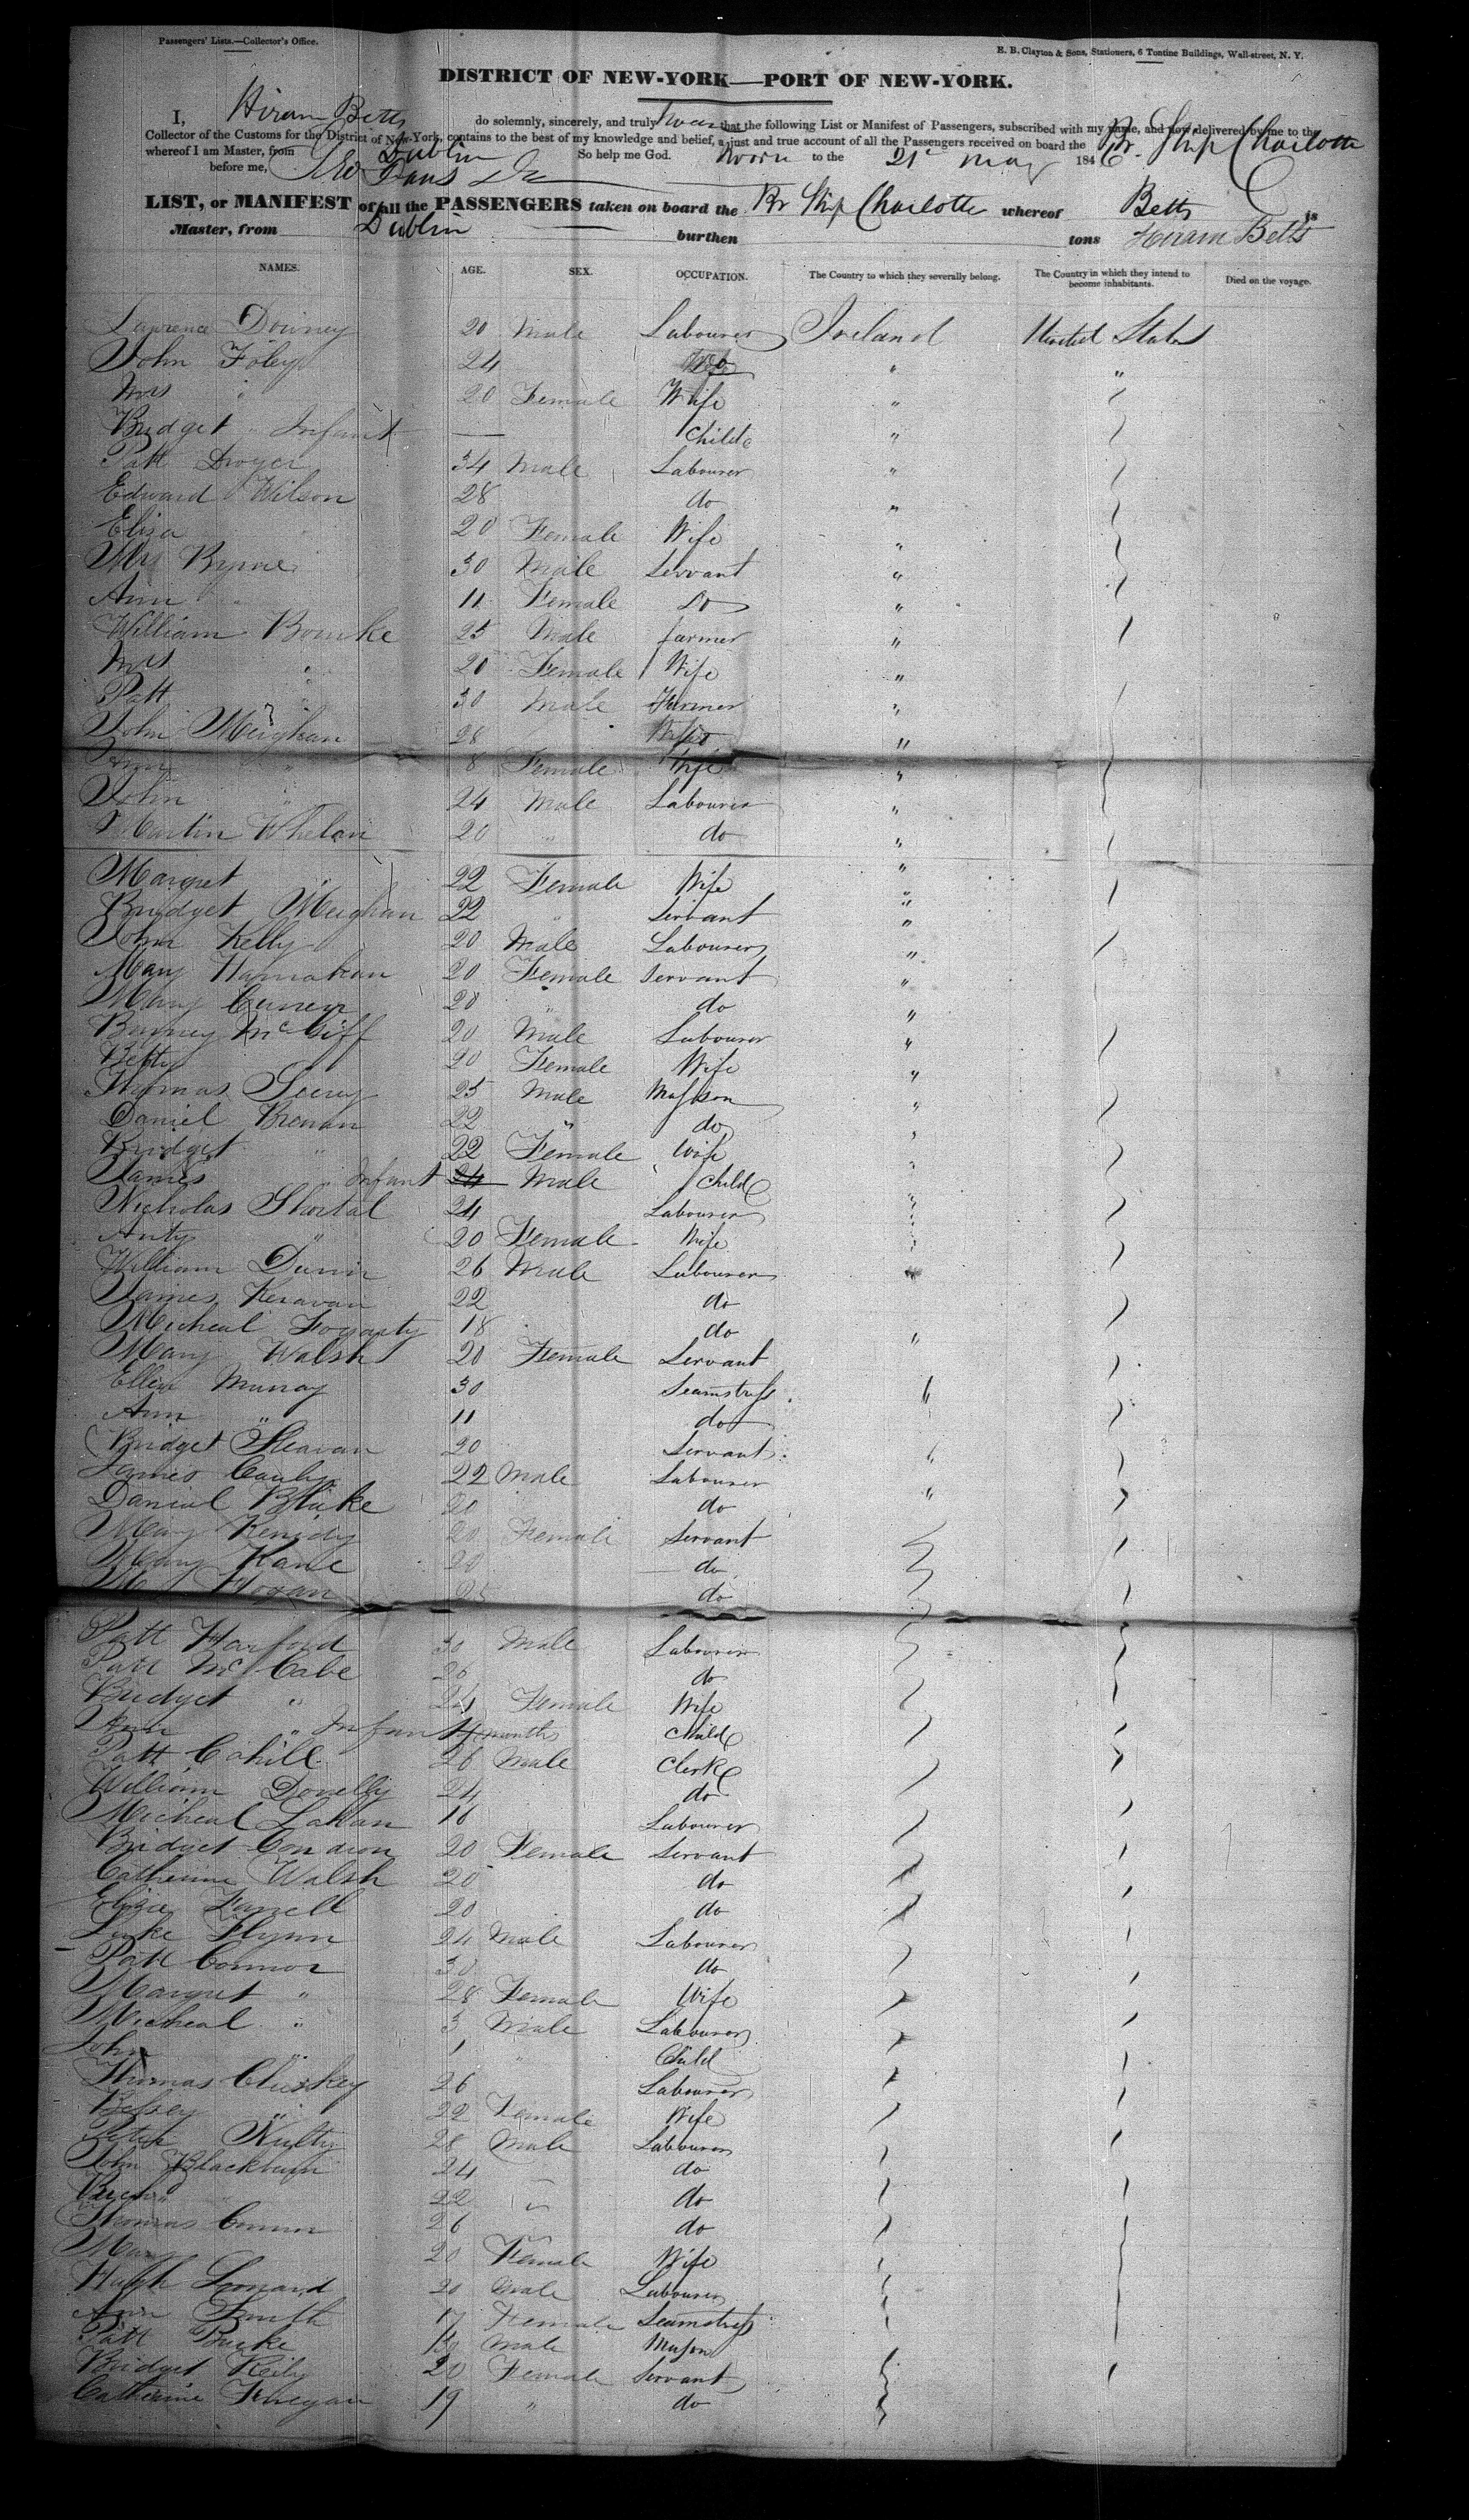 Passengers' Lists.—Collector's Office.
E. B. Clayton & Sons, Stationers, 6 Tontine Buildings, Wall-street, N. Y.
DISTRICT OF NEW-YORK—PORT OF NEW-YORK.
I, Hiram Betts do solemnly, sincerely, and truly swear that the following List or Manifest of Passengers, subscribed with my name, and now delivered by me to the
Collector of the Customs for the District of New-York, contains to the best of my knowledge and belief, a just and true account of all the Passengers received on board the Br. Ship Charlotte
whereof I am Master, from Dublin So help me God.
Sworn to the 21st May 1846
before me,
LIST, or MANIFEST of all the PASSENGERS taken on board the Br Ship Charlotte whereof Betts is
Master, from Dublin burthen tons Hiram Betts
NAMES. AGE. SEX. OCCUPATION. The Country to which they severally belong. The Country in which they intend to become inhabitants. Died on the voyage.
Lawrence Downey 20 Male Labourer Ireland United States
John Foley 24 " "
Mrs " 20 Female Wife "
Bridget " Infant — Child "
Patt Dwyer 34 Male Labourer "
Edward Wilson 28 do "
Eliza 20 Female Wife "
Byrne 30 Male Servant "
Ann 11 Female Do "
William Bourke 25 Male farmer "
Mrs " 20 Female Wife "
Patt " 30 Male Farmer "
John Meighan 28 "
Ann " 8 Female "
John " 24 Male Labourer "
Martin Whelan 20 " do "
Margret " 22 Female Wife "
Bridget Meighan 22 " Servant "
John Kelly 20 Male Labourer "
Mary 20 Female Servant "
Mary 20 " do "
Barney 20 Male Labourer "
Betty 20 Female Wife "
Thomas Seery 25 Male Masson "
Daniel Brenan 22 " do "
Bridget " 22 Female Wife "
James " Infant Male Child "
Nicholas Shortal 24 Labourer "
Anty " 20 Female Wife "
William Dunn 26 Male Labourer "
James Keravan 22 do
Micheal Fogarty 18 do "
Mary Walsh 20 Female Servant
Ellen Murray 30 Seamstress "
Ann " 11 do
Bridget 20 Servant "
James 22 Male Labourer
Danial Blake 20 do "
Mary Kenidy 20 Female Servant
Mary Kane 20 do
Hogan 25 do
Patt Harford 30 Male Labourer
Patt McCabe 26 do
Bridget " 24 Female Wife
Ann " Infant months Child
Patt Cahill 26 Male Clerk
William Donelly 24 do
Micheal 16 Labourer
Bridget Condron 20 Female Servant
Catherine Walsh 20 do
Farrell 20 do
Luke Flynn 24 Male Labourer
Patt Connor 30 do
Margret " 28 Female Wife
Micheal " 3 Male Labourer
John " 1 " Child
Thomas Cluskey 26 Labourer
Betsey " 22 Female Wife
Peter Nulty 28 Male Labourer
John Blackburn 24 do
22 do
Thomas Connor 26 do
Mary 20 Female Wife
Hugh 20 Male Labourer
Ann Smith 17 Female Seamstress
Patt Burke Male Mason
Bridget Reily 20 Female Servant
Catherine Finegan 19 " do